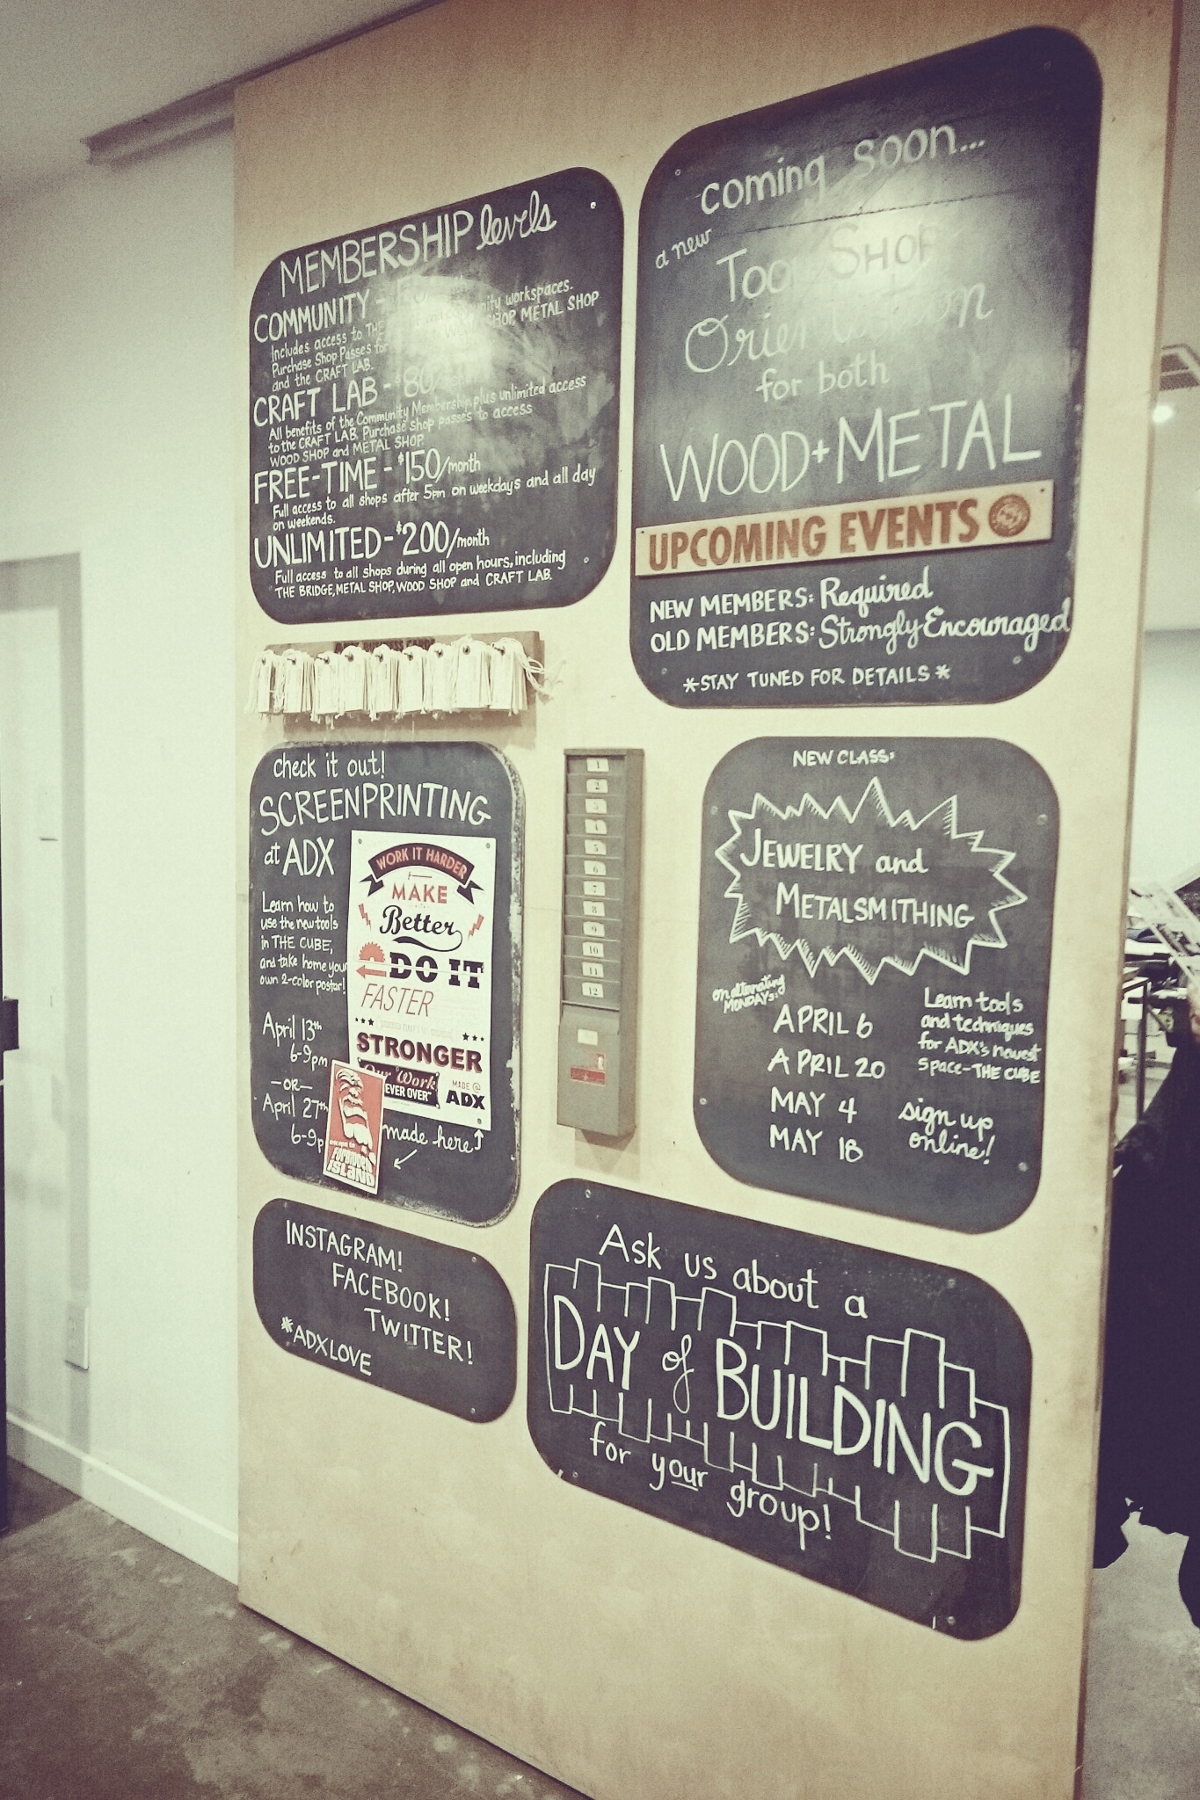 MEMBERSHIP levels
COMMUNITY -
Includes access to THE community workspaces.
Purchase Shop Passes for SHOP, METAL SHOP
and the CRAFT LAB.
CRAFT LAB - $80
All benefits of the Community Membership, plus unlimited access
to the CRAFT LAB. Purchase Shop passes to access
WOOD SHOP and METAL SHOP.
FREE-TIME - $150/month
Full access to all shops after 5pm on weekdays and all day
on weekends.
UNLIMITED - $200/month
Full access to all shops during all open hours, including
THE BRIDGE, METAL SHOP, WOOD SHOP and CRAFT LAB.
coming soon...
a new
Tool SHOP
Orientation
for both
WOOD + METAL
UPCOMING EVENTS
NEW MEMBERS: Required
OLD MEMBERS: Strongly Encouraged
*STAY TUNED FOR DETAILS*
check it out!
SCREENPRINTING
at ADX
Learn how to
use the new tools
in THE CUBE,
and take home your
own 2-color poster!
April 13th
6-9pm
-OR-
April 27th
6-9p
WORK IT HARDER
MAKE
Better
DO IT
FASTER
STRONGER
Our Work
EVER OVER"
MADE @
ADX
made here↑
ISLAND
1
2
3
4
5
6
7
8
9
10
11
12
NEW CLASS:
JEWELRY and
METALSMITHING
on alternating
MONDAYS:
APRIL 6
APRIL 20
MAY 4
MAY 18
Learn tools
and techniques
for ADX's newest
space-THE CUBE
sign up
online!
INSTAGRAM!
FACEBOOK!
TWITTER!
*ADXLOVE
Ask us about a
DAY of BUILDING
for your group!